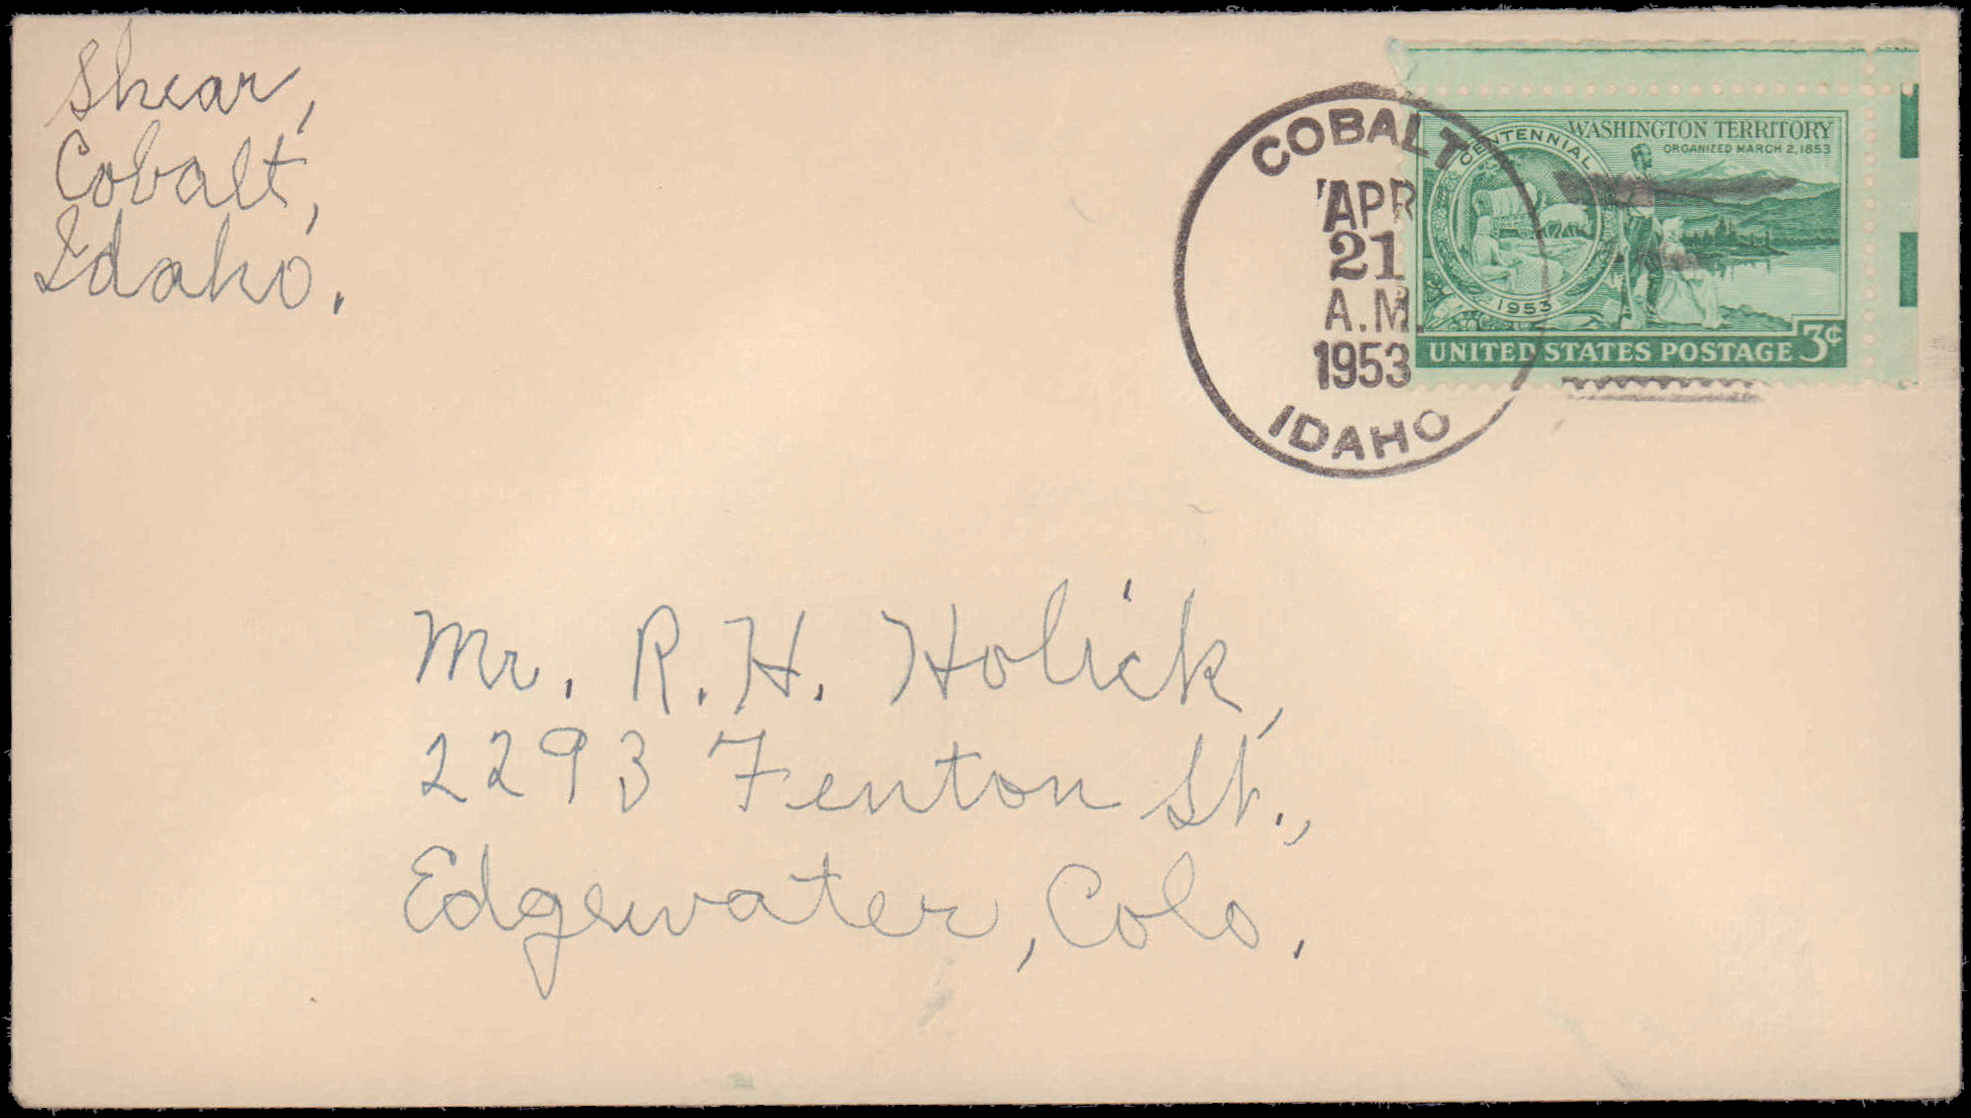 Shear,
Cobalt,
Idaho.
COBALT
APR
21
A.M.
1953
IDAHO
WASHINGTON TERRITORY
ORGANIZED MARCH 2, 1853
CENTENNIAL
1953
UNITED STATES POSTAGE 3¢
Mr. R. H. Holick,
2293 Fenton St.,
Edgewater, Colo.